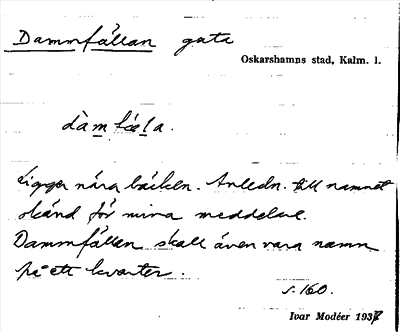 Dammfällan gata
Oskarshamns stad, Kalm. l.
dàmfæla.
Ligger nära bäcken. Anledn. till namnet
okänd för mina meddelare.
Dammfällan skall även vara namn
på ett kvarter.
s. 160.
Ivar Modéer 1937